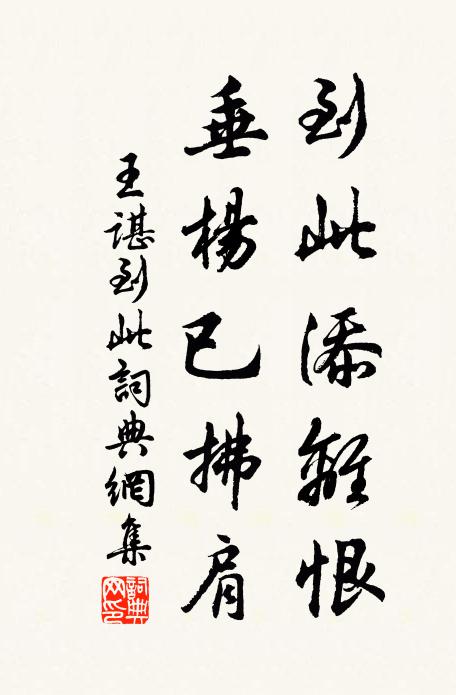 到此添離恨
垂楊已拂肩
王諶到此詞典網集
詞典网印